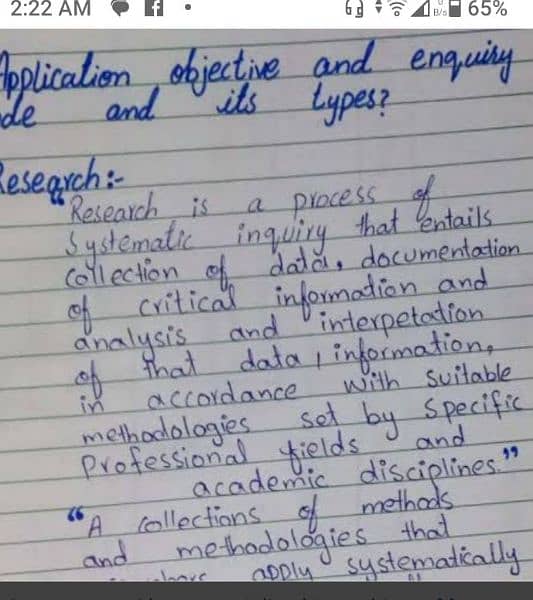 2:22 AM
65%
Application objective and enquiry
de and its types?
Research:-
"Research is a process of
Systematic inquiry that entails
collection of data, documentation
of critical information and
analysis and interpetation
of that data, information,
in accordance with suitable
methodologies set by specific
Professional fields and
academic disciplines."
"A Collections of methods
and methodologies that
apply systematically